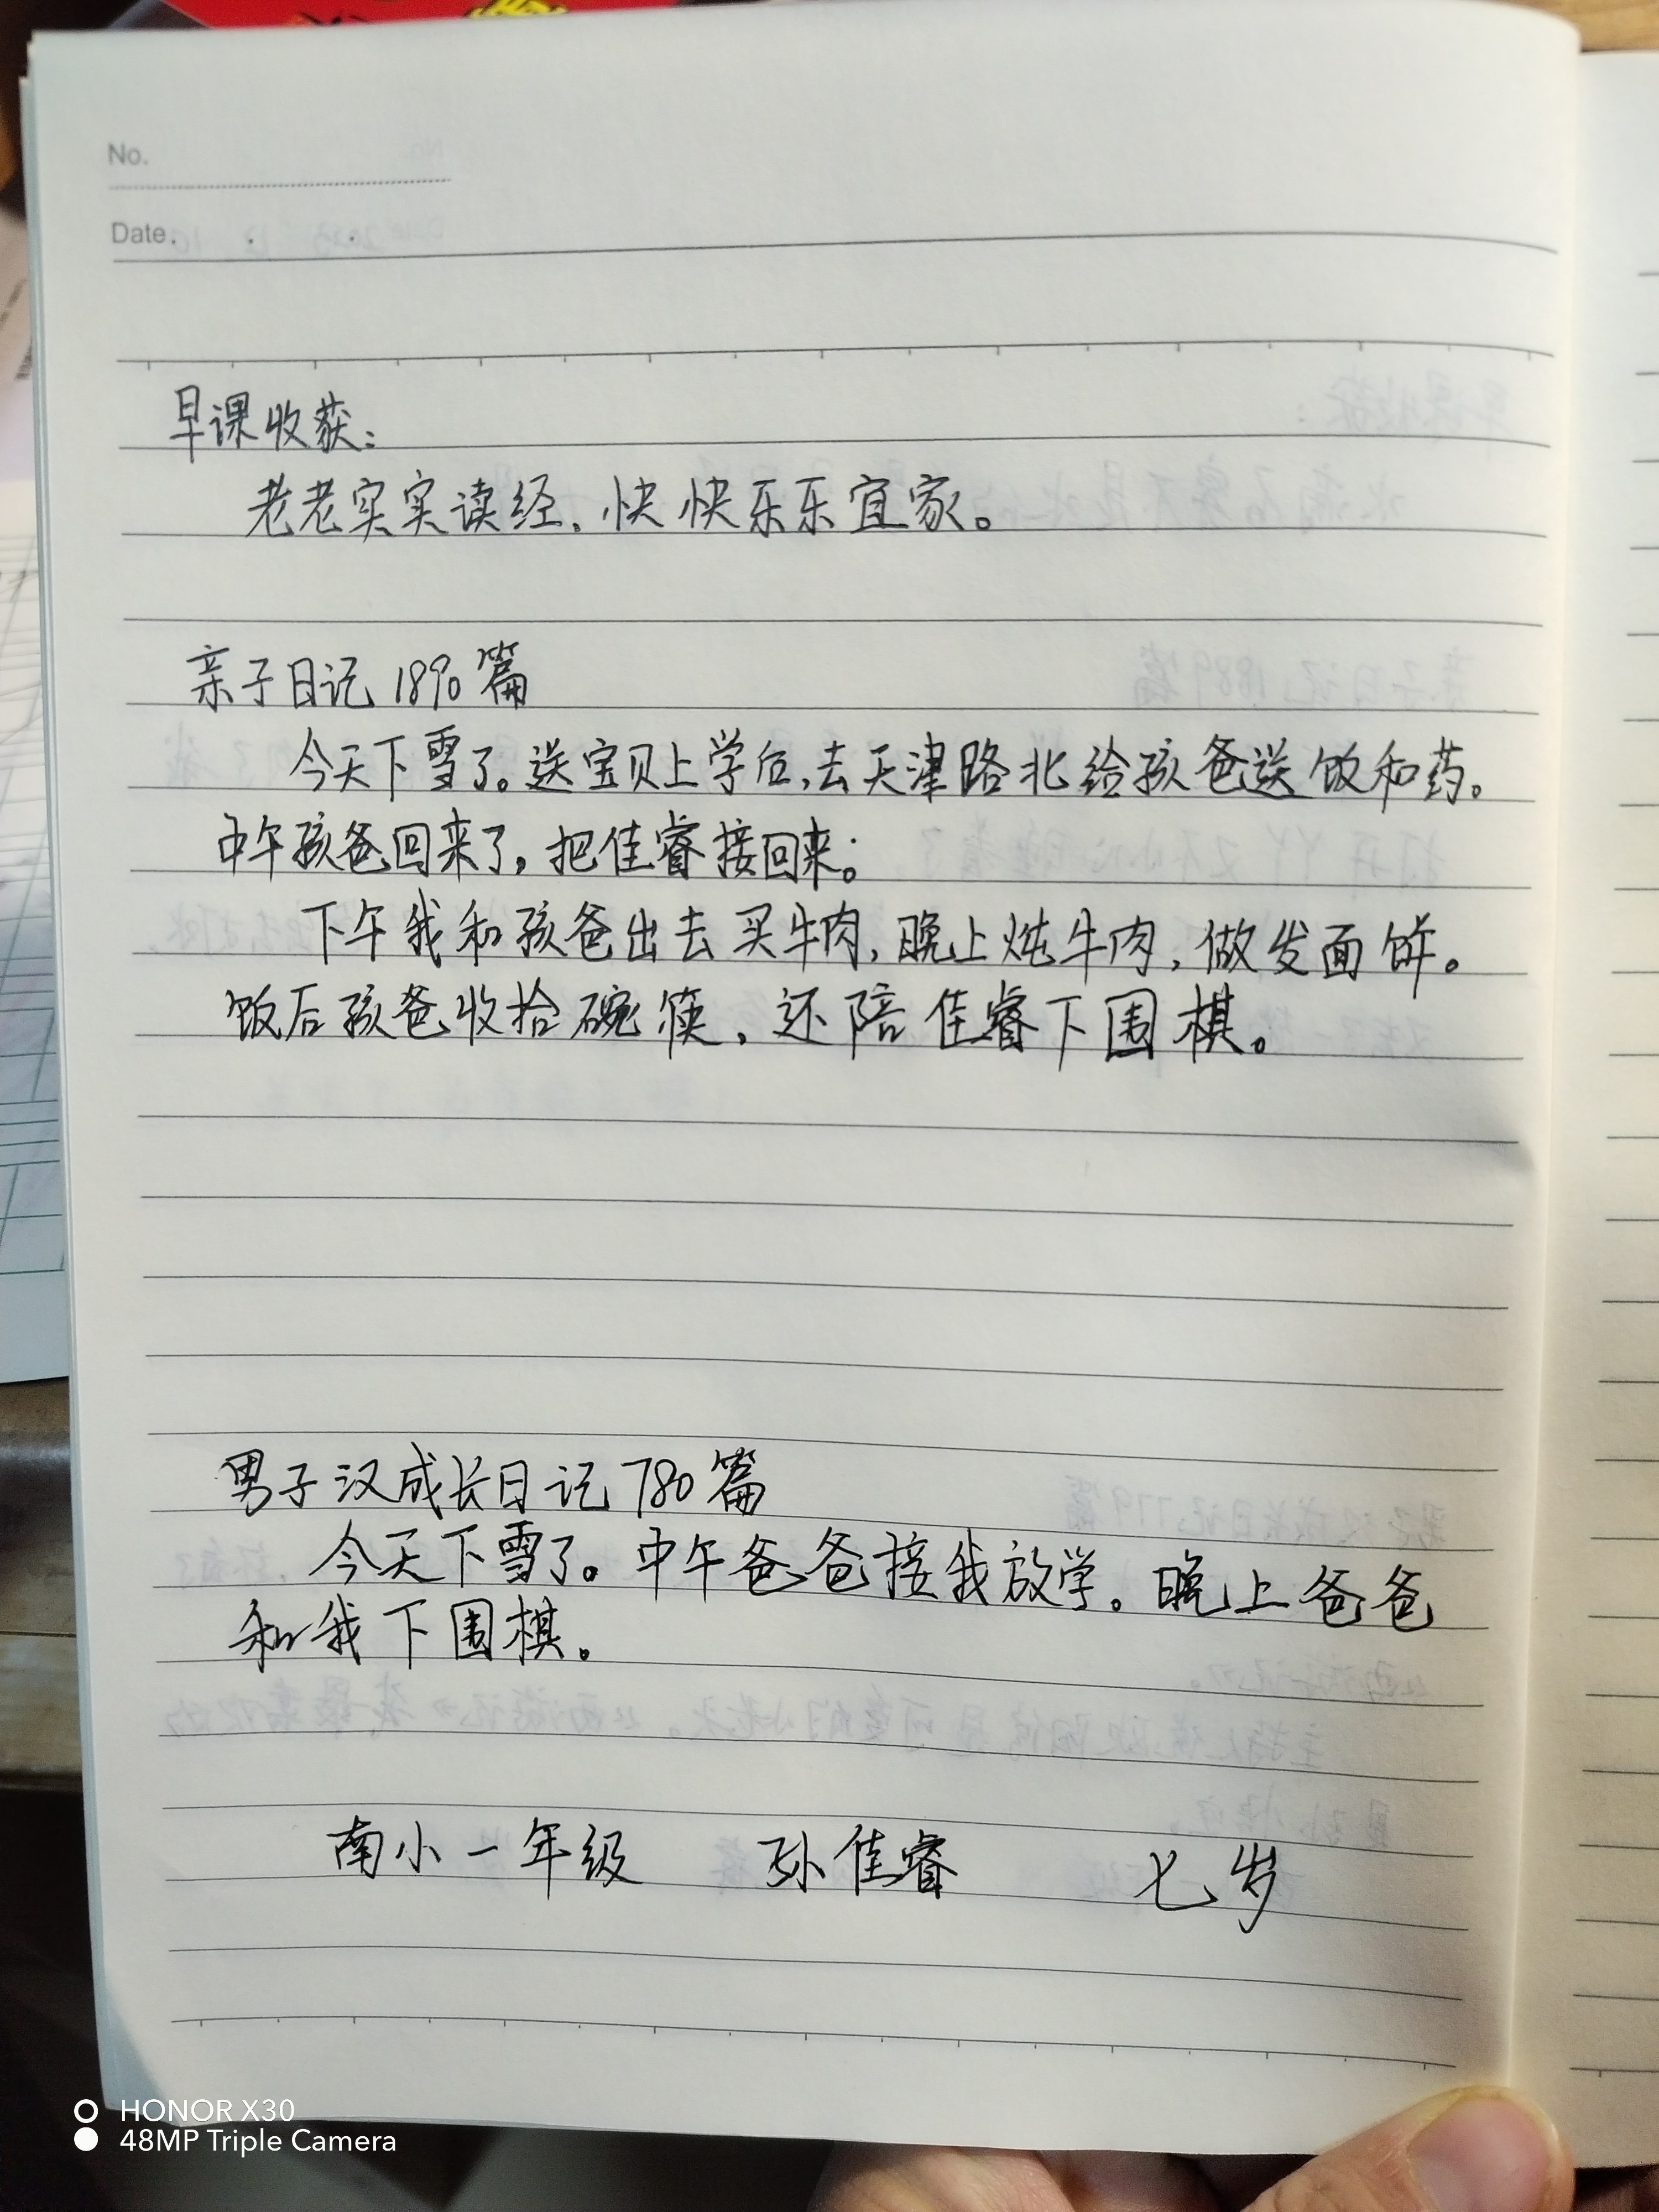 No.
Date.
早课收获:
老老实实读经,快快乐乐宜家。
亲子日记1890篇
今天下雪了。送宝贝上学后,去天津路北给孩爸送饭和药。
中午孩爸回来了,把佳睿接回来。
下午我和孩爸出去买牛肉,晚上炖牛肉,做发面饼。
饭后孩爸收拾碗筷,还陪佳睿下围棋。
男子汉成长日记780篇
今天下雪了。中午爸爸接我放学。晚上爸爸
和我下围棋。
南小一年级 孙佳睿 七岁
HONOR X30
48MP Triple Camera